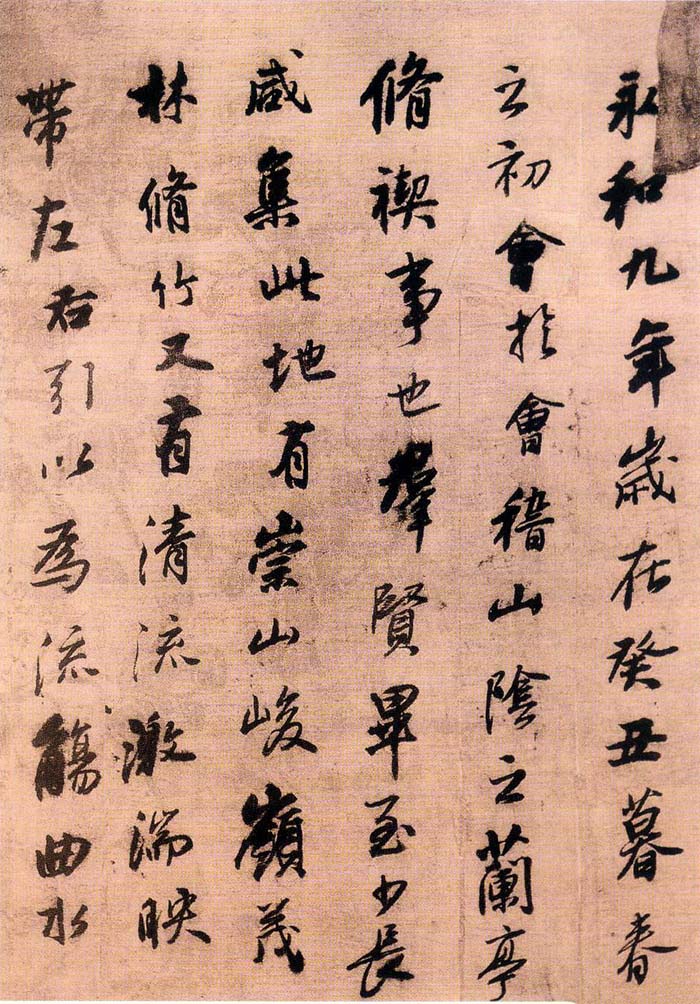 永和九年歳在癸丑暮春
之初會於會稽山陰之蘭亭
脩禊事也羣賢畢至少長
咸集此地有崇山峻嶺茂
林脩竹又有清流激湍映
帶左右引以為流觴曲水